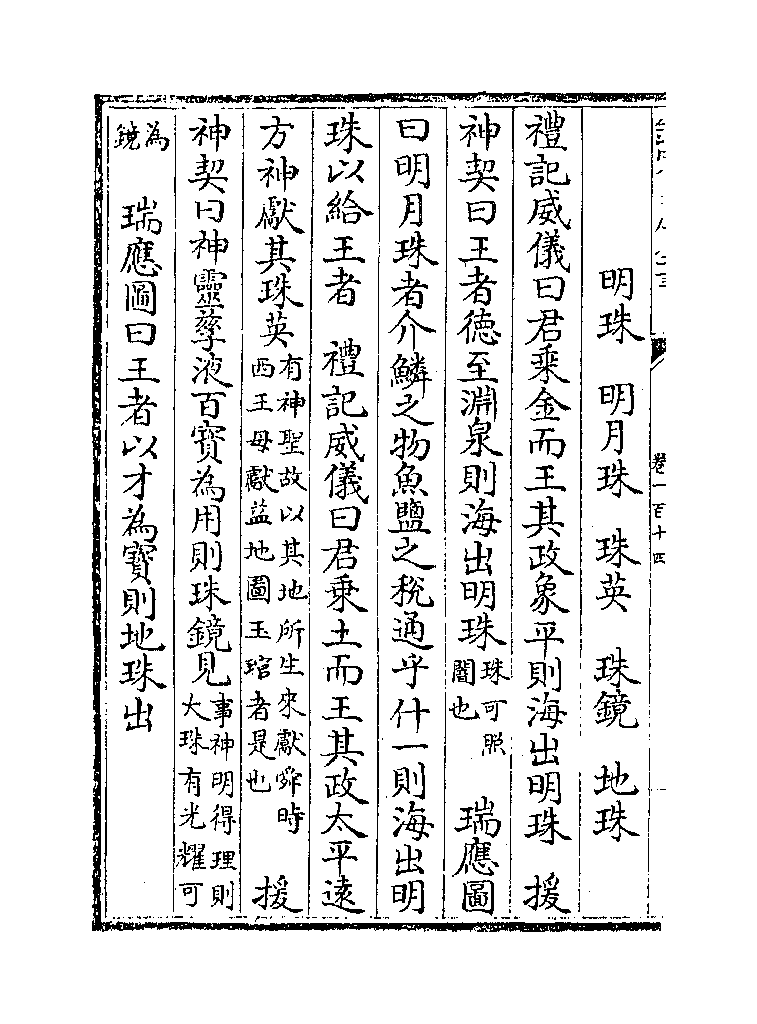 明珠　明月珠　珠英　珠鏡　地珠
禮記威儀曰君乘金而王其政象平則海出明珠　援
神契曰王者德至淵泉則海出明珠珠可照闇也　瑞應圖
曰明月珠者介鱗之物魚鹽之稅通乎什一則海出明
珠以給王者　禮記威儀曰君乗土而王其政太平遠
方神獻其珠英有神聖故以其地所生來獻舜時西王母獻益地圖玉琯者是也　援
神契曰神靈孳液百寳為用則珠鏡見事神明得理則大珠有光耀可
為鏡　瑞應圖曰王者以才為寳則地珠出
卷一百十四